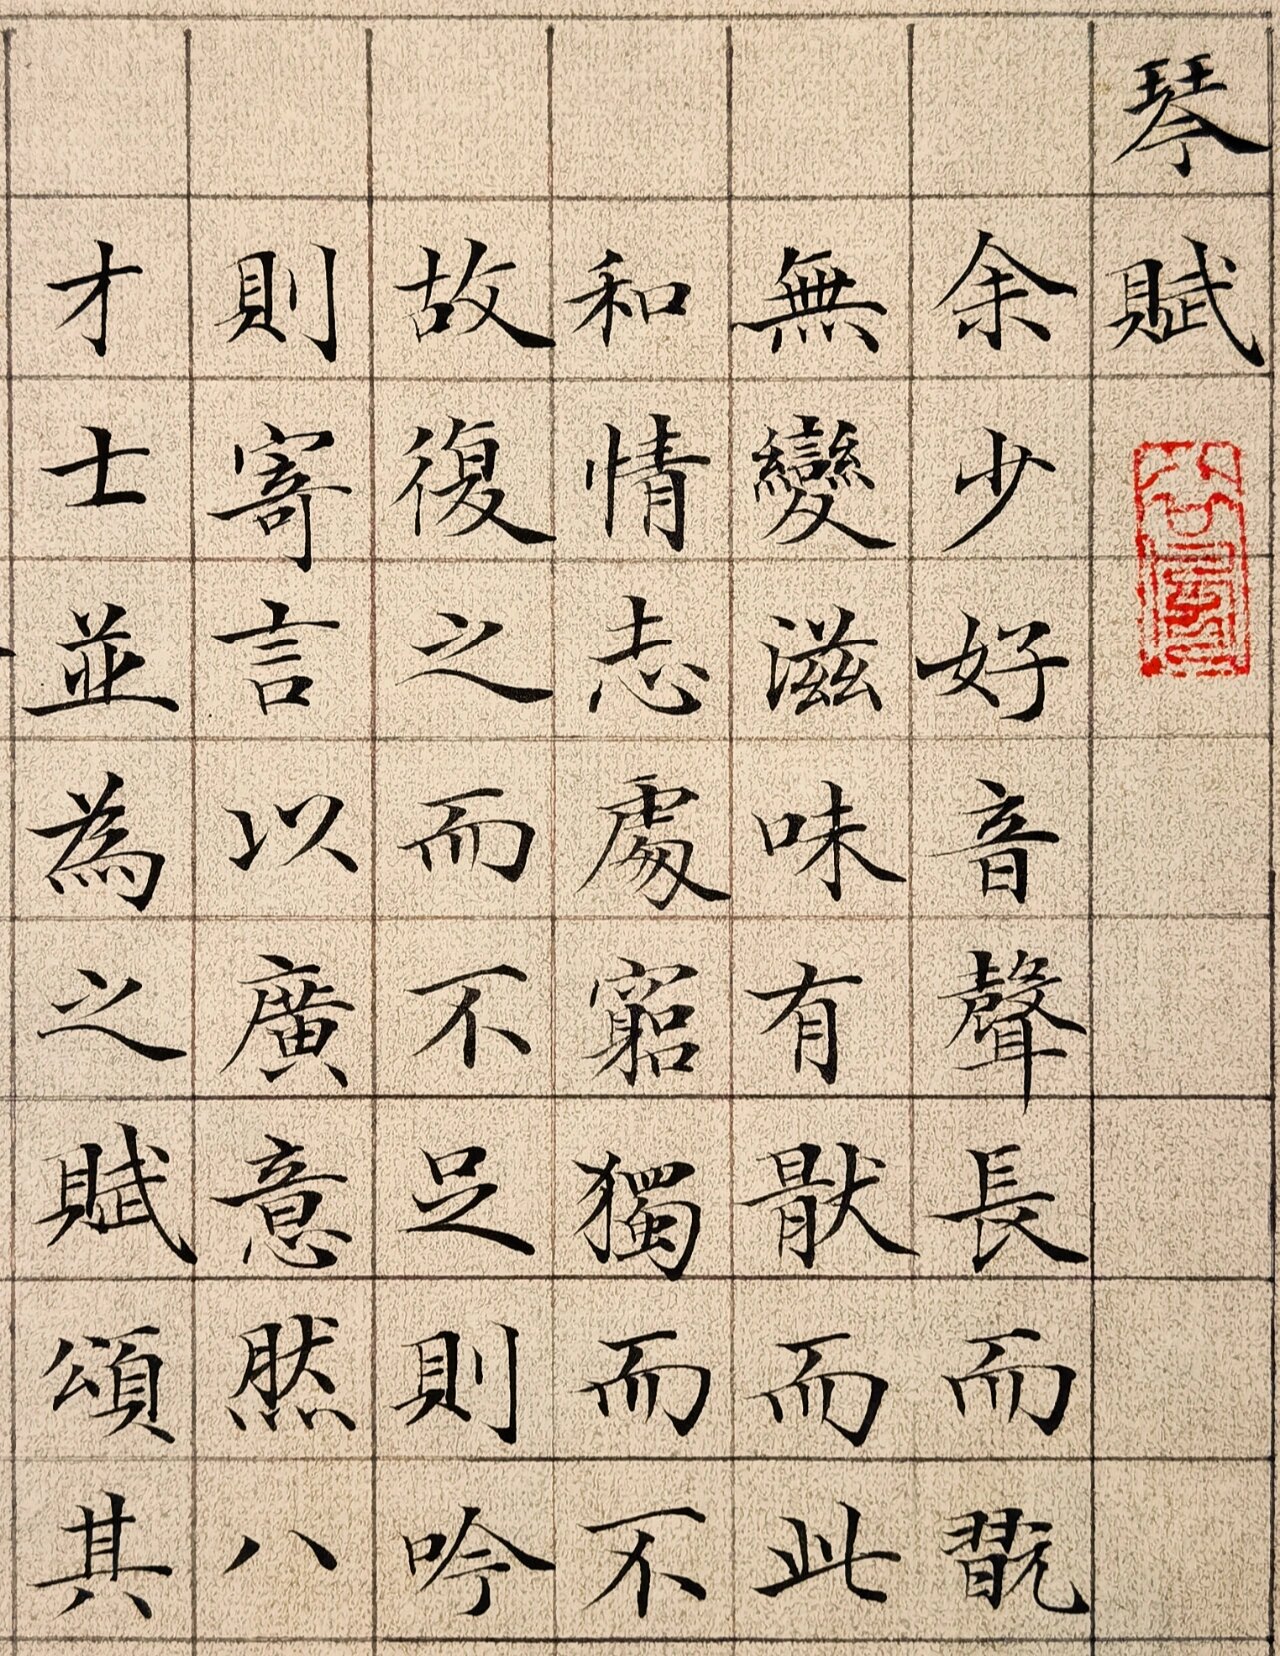 琴賦
余少好音聲長而翫
無變滋味有猒而此
和情志處窮獨而不
故復之而不足則吟
則寄言以廣意然八
才士並為之賦頌其